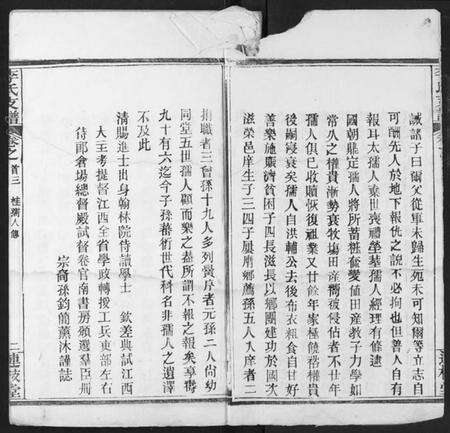 誡諸子曰爾父從軍未歸生死未可知爾等立志自
可酬先人於地下報仇之說不必拘也但普人自有
報耳太孺人棄世喪禮塋墓孺人經理有條逮
國朝鼎定孺人將所蓄粧奩變值田產教子力學如
常久之權貴漸勢衰牧塲田產嚮被侵佔者不廿年
孺人俱已收贖恢復祖業又廿餘年家極饒裕權貴
後嗣寖衰矣孺人自洪輔公去後布衣粗食自甘好
善樂施賑濟貧困子四長滋長以鄉團建功於國次
滋榮邑庠生子三四子
捐職者三曾孫十九人多列黌庠者元孫二人尙幼
同堂五世孺人顧而樂之蓋所謂不報之報矣享壽
九十有六迄今子孫蕃衍世代科名非孺人之遺澤
不及此
清賜進士出身翰林院侍讀學士 欽差典試江西
大主考提督江西全省學政轉授工兵吏部左右
侍郎倉塲總督殿試督卷官南書房
宗裔孫鈞簡薰沐謹誌
李氏支譜 卷之首三 桂孺人傳
二 連枝堂